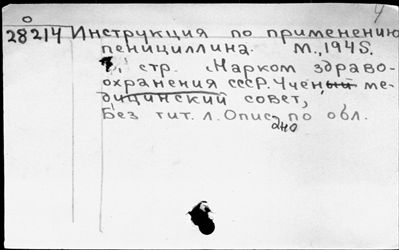 28214 Инструкция по применению
пенициллина. М., 1945.
стр. (Нарком здраво-
охранения СССР. Ученый ме-
дицинский совет,
Без тит. л. Описано по обл.